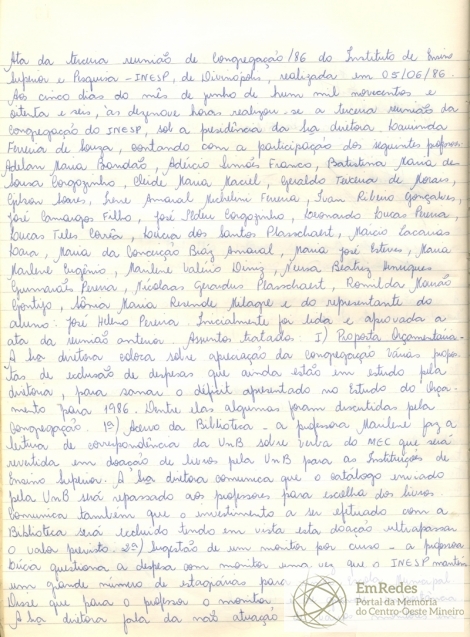 Ata da terceira reunião de Congregação/86 do Instituto de Ensino
Superior e Pesquisa - INESP, de Divinópolis, realizada em 05/06/86.
Aos cinco dias do mês de junho de hum mil novecentos e
oitenta e seis, às dezenove horas realizou-se a terceira reunião da
Congregação do INESP, sob a presidência da sra diretora
Ferreira de Souza, contando com a participação dos seguintes professores
Adelan Maria Brandão, Adércio Simões Franco, Batistina Maria de
Sousa Corgozinho, Cleide Maria Maciel, Geraldo Teixeira de Morais,
Gylson Soares, Irene Amaral Micheline Ferreira, Ivan Ribeiro Gonçalves,
José Camargos Filho, José Pedro Corgozinho, Leonardo Lucas Pereira,
Lucas Teles Corrêa, Lucia dos Santos Plasschaert, Marcio Lacanas
Lara, Maria da Conceição Amaral, Maria José Esteves, Maria
Marlene Eugênio, Marlene Valério Diniz, Neusa Beatriz Henriques
Guimarães Pereira, Nicolaas Gerardus Plasschaert, Romilda Mourão
Gontijo, Sônia Maria Resende Milagre e do representante do
aluno José Heleno Pereira. Inicialmente foi lida e aprovada a
ata da reunião anterior. Assuntos tratados: I) Proposta Orçamentária -
A sra diretora coloca sobre apreciação da congregação várias propos-
tas de reclusão de despesas que ainda estão em estudo pela
diretoria, para sanar o déficit apresentado no Estudo do Orça-
mento para 1986. Dentre elas algumas foram discutidas pela
Congregação. 1º) Acervo da Biblioteca - a professora Marlene faz a
leitura de correspondência da UnB sobre verba do MEC que será
revertida em doação de livros pela UnB para as Instituições de
Ensino Superior. A sra diretora comunica que o catálogo enviado
pela UnB será repassado aos professores para escolha dos livros.
Comunica também que o investimento a ser efetuado com a
Biblioteca será recluido tendo em vista esta doação ultrapassar
o valor previsto. 2º) Sugestão de um monitor por curso - a professora
Lúcia questiona a despesa com monitor uma vez que o INESP mantém
um grande número de estagiárias para
Disse que para o professor o monitor
A sra diretora fala da não atuação
EmRedes
Portal da Memória
do Centro-Oeste Mineiro